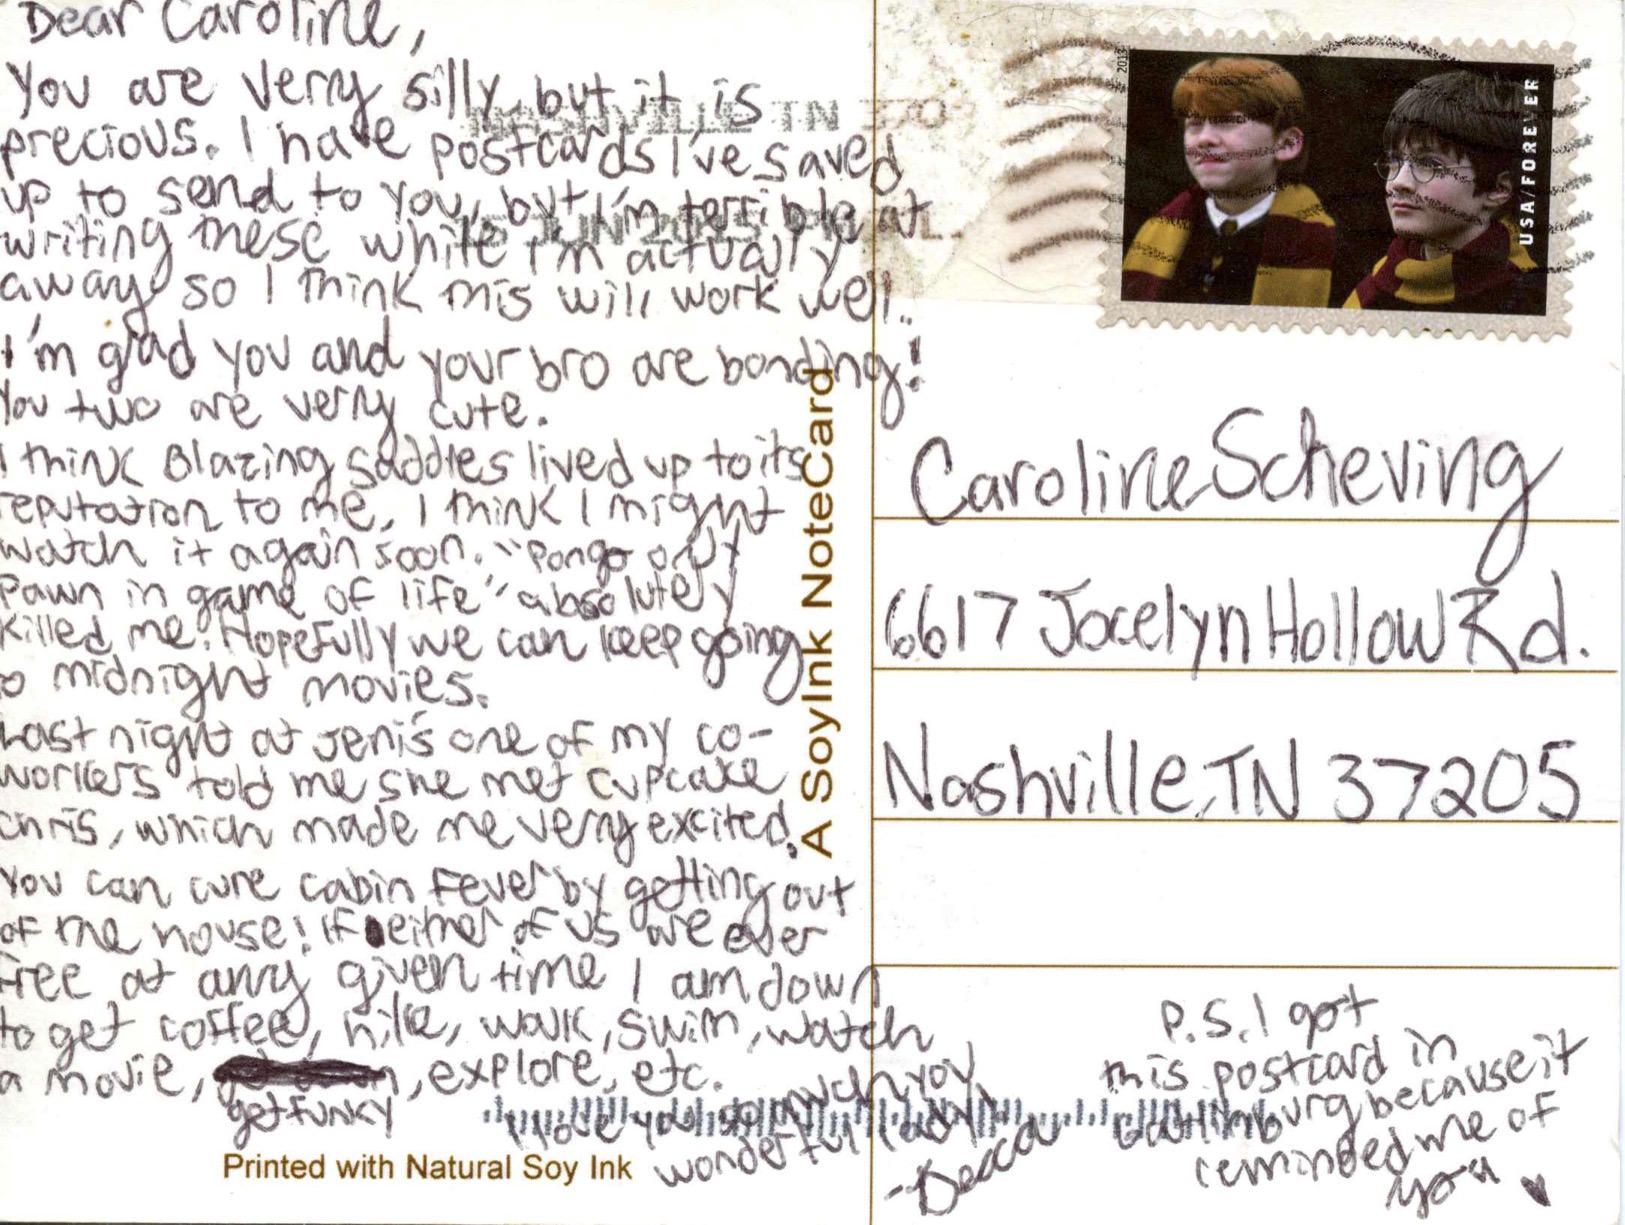 Dear Caroline,
You are very silly but it is
precious. I have postcards I've saved
up to send to you, but I'm terrible at
writing these while I'm actually
away so I think this will work well.
I'm glad you and your bro are bonding!
You two are very cute.
I think Blazing Saddles lived up to its
reputation to me. I think I might
watch it again soon. "Pongo only
pawn in game of life" absolutely
killed me. Hopefully we can keep going
to midnight movies.
Last night at Jeni's one of my co-
workers told me she met cupcake
chris, which made me very excited.
You can cure cabin fever by getting out
of the house! If either of us are ever
free at any given time I am down
to get coffee, hike, walk, swim, watch
a movie, , explore, etc.
get funky
I love you so much you
wonderful lady!
-Becca
Printed with Natural Soy Ink
A SoyInk NoteCard
NASHVILLE TN 370
15 JUN 2015 PM L
2013
USA/FOREVER
Caroline Scheving
6617 Jocelyn Hollow Rd.
Nashville, TN 37205
P.S. I got
this postcard in
Gatlinburg because it
reminded me of
you ♥